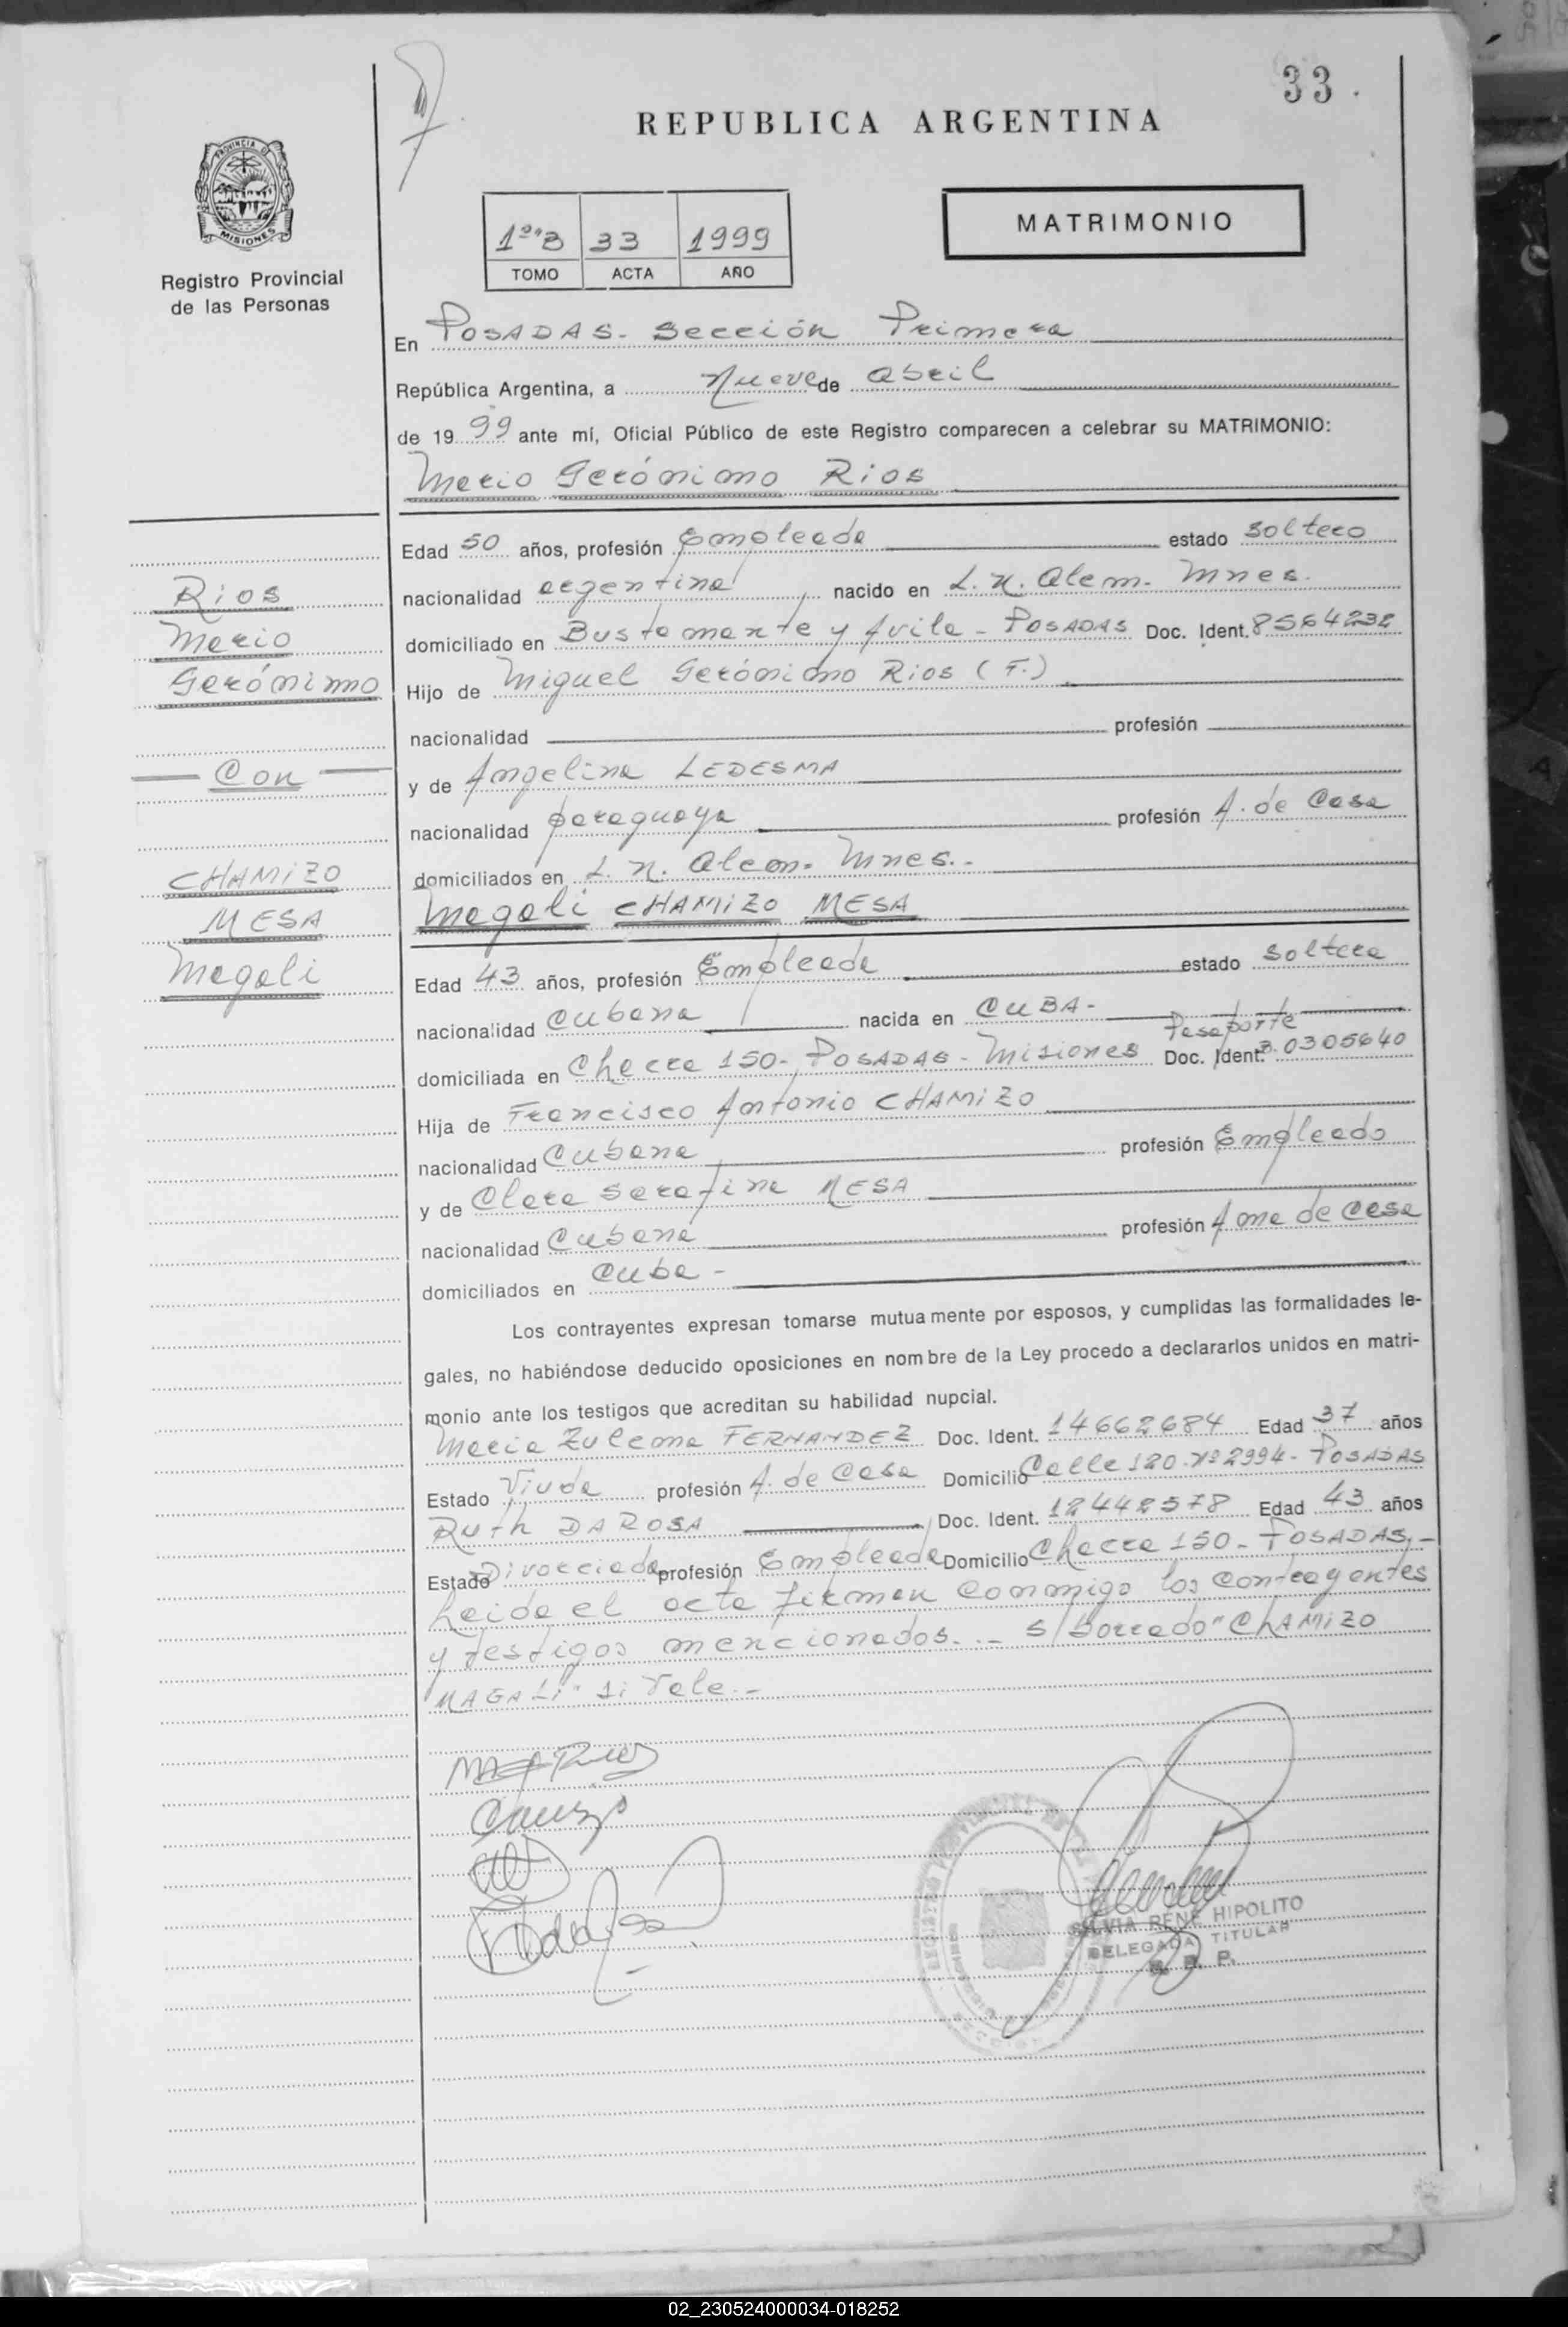 33.
REPUBLICA ARGENTINA
PROVINCIA DE MISIONES
Registro Provincial
de las Personas
1º"B 33 1999
TOMO ACTA AÑO
MATRIMONIO
En POSADAS - Sección Primera
República Argentina, a Nueve de Abril
de 1999 ante mí, Oficial Público de este Registro comparecen a celebrar su MATRIMONIO:
Mario Gerónimo Rios
Edad 50 años, profesión Empleado estado soltero
Rios
nacionalidad argentina nacido en L.N. Alem - Mnes.
Mario
domiciliado en Bustamante y Avila - POSADAS Doc. Ident. 8564232
Gerónimo
Hijo de Miguel Gerónimo Rios (F.)
nacionalidad profesión
Con
y de Angelina LEDESMA
nacionalidad paraguaya profesión A. de Casa
CHAMIZO
domiciliados en L.N. Alem - Mnes.-
MESA
Magali CHAMIZO MESA
Magali
Edad 43 años, profesión Empleada estado soltera
nacionalidad Cubana nacida en CUBA-
Pasaporte
domiciliada en Chacra 150 - POSADAS - Misiones Doc. Ident. 0305640
Hija de Francisco Antonio CHAMIZO
nacionalidad Cubana profesión Empleado
y de Clara Serafina MESA
nacionalidad Cubana profesión Ama de Casa
domiciliados en Cuba -
Los contrayentes expresan tomarse mutuamente por esposos, y cumplidas las formalidades le-
gales, no habiéndose deducido oposiciones en nombre de la Ley procedo a declararlos unidos en matri-
monio ante los testigos que acreditan su habilidad nupcial.
Maria Zulema FERNANDEZ Doc. Ident. 14662684 Edad 37 años
Estado Viuda profesión A. de Casa Domicilio Calle 120 - Nº 2994 - POSADAS
Ruth DA ROSA Doc. Ident. 12442578 Edad 43 años
Estado Divorciada profesión Empleada Domicilio Chacra 150 - POSADAS.-
Leida el acta firman conmigo los contrayentes
y testigos mencionados.-- s/borrado "ChAMIZO
MAGALI" Si Vale.-
SILVIA RENE HIPOLITO
DELEGADA TITULAR
R. P. P.
02_230524000034-018252